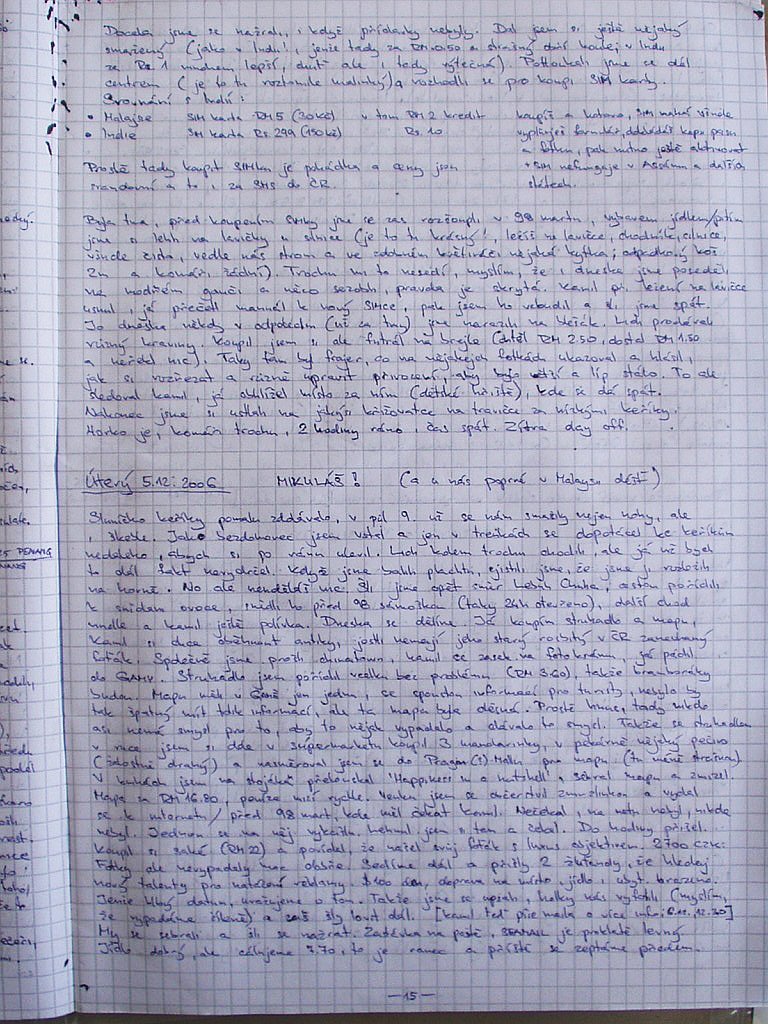 Docela jsme se nažrali, i když přídavky nebyly. Dal jsem si ještě nějaký
smažený (jako v Indii!, jenže tady za RM 0.50 a strašný dort koulej v Indii
za Rs. 1 mnohem lepší, ale i tady výtečný). Potloukali jsme se dál
centrem (je to tu roztomile malinký) a rozhodli se pro koupi SIM karty.
Srovnání s Indií:
• Malajsie SIM karta RM 5 (30 kč) v tom RM 2 kredit koupíš a hotovo, SIM makaj všude
• Indie SIM karta Rs. 299 (150 kč) Rs. 10 vyplníš formulář, dokládáš kopii pasu
a fotku, pak nutno ještě aktivovat
Prostě tady koupit SIMku je pohádka a ceny jsou + SIM nefunguje v Assámu a dalších
srandovní a to i za SMS do ČR. státech.
Byla tma, před koupením SIMky jme se zas rozšoupli v 98 martu, vybaveni jídlem/pitím
jsme si lehli na lavičky u silnice (je to tu krásný!, lehší na lavičce, chodník, silnice,
všude čisto, vedle nás strom a ve zdobném květináči nějaká kytka; odpadkový koš
2m a komáři žádní). Trochu mi to nesedí, myslím, že i dneska jsme poseděli
na modřejm gauči a něco sezobli, pravda je skrytá. Kamil při ležení na lavičce
usnul, já přečetl manuál k nový SIMce, pak jsem ho vzbudil a šli jsme spát.
Jo dneska někdy v odpoledni (už za tmy) jme narazili na blešák. Lidi prodávali
různý kraviny koupil jsem si ale futrál na brejle (chtěl RM 2.50, dostal RM 1.50
a neřekl nic). Taky tam byl frajer, co na nějakejch fotkách ukazoval a hlásil,
jak si rozřezat a různě upravit přirození, aby bylo větší a líp stálo. To ale
sledoval kamil, já obhlížel místo za ním (dětské hřiště), kde se dá spát.
Nakonec jsme si ustlali na jakýsi křižovatce na travičce za nízkými keříky.
Horko je, komárů trochu, 2 hodiny ráno, čas spát. Zítra day off.
Úterý 5.12. 2006 MIKULÁŠ! (a u nás poprvé v Malaysii déšť)
Sluníčko keříky pomalu zdolávalo, v půl 9. už se nám smažily nejen nohy, ale
i kebule. Jako bezdomovec jsem vstal a jen v trenkách se dopotácel ke keříkům
nedalekým, abych si po ránu ulevil. Lidi kolem trochu chodili, ale já už bych
to dál fakt nevydržel. Když jsme balili plachtu, zjistili jsme, že jsme ji rozložili
na hovně. No ale nenadělali nic. Šli jsme opět směr Lebuh Chulia, cestou pořídili
k snídani ovoce, snědli ho před 98 sámoškou (taky 24h otevřeno), další chod
nudle a kamil ještě polívka. Dneska se dělíme. Já koupím struhadlo a mapu,
kamil si chce oběhnout antiky, jestli nemají jeho starý rozbitý v ČR zanechaný
foťák. Společně jsme prošli chinatown, kamil se zasek na fotokrámu, já pádil
do GAMY. Struhadlo jsem pořídil vcelku bez problému (RM 3.60), takže bramboráky
budou. Mapu měli v Gamě jen jednu, se spoustou informací pro turisty, nebylo by
tak špatný mít tolik informací, ale ta mapa byla děsná. Prostě hnus, tady nikdo
asi nemá smysl pro to, aby to nějak vypadalo a dávalo to smysl. Takže se struhadlem
v ruce jsem si dole v supermarketu koupil 3 mandarinky, v pekárně nějaký pečivo
(žalostně drahý) a nasměroval jsem se do Prangin(?) Mallu pro mapu (tu méně strašnou).
V knihách jsem na stojáka přelouskal 'Happiness in a nutshell', sebral mapu a zmizel.
Mapa za RM 16.80, pouze rychle. Venku jsem se občerstvil zmrzlinkou a vydal
se k internetu / před 98 mart, kde měl čekat kamil. Nečekal, na netu nebyl, nikde
nebyl. Jednou se na něj vykašlu. Lehnul jsem si tam a čekal. Do hodiny přišel.
Koupil si saké (RM 22) a povídal, že našel svůj foťák s luxus objektivem. 2700 CZK.
Fotky ale nevypadaly moc dobře. Sedíme dál a přišly 2 žkřendy, že hledaj
nový talenty pro natočení reklamy. $100 den, doprava na místo, jídlo i ubyt. hrazeno.
Jenže blbý datum, uvažujeme o tom. Takže jsme se upsali, holky nás vyfotili (myslím,
že vypadáme šíleně) a zas šly lovit dál. [kamil teď píše maila o více info. 6.12. 12.30]
My se sebrali a šli se nažrat. Zastávka na poště, SEAMAIL je proklatě levný.
Jídlo dobrý, ale cálujeme 7.70, to je ranec a příště se zeptáme předem.
— 15 —